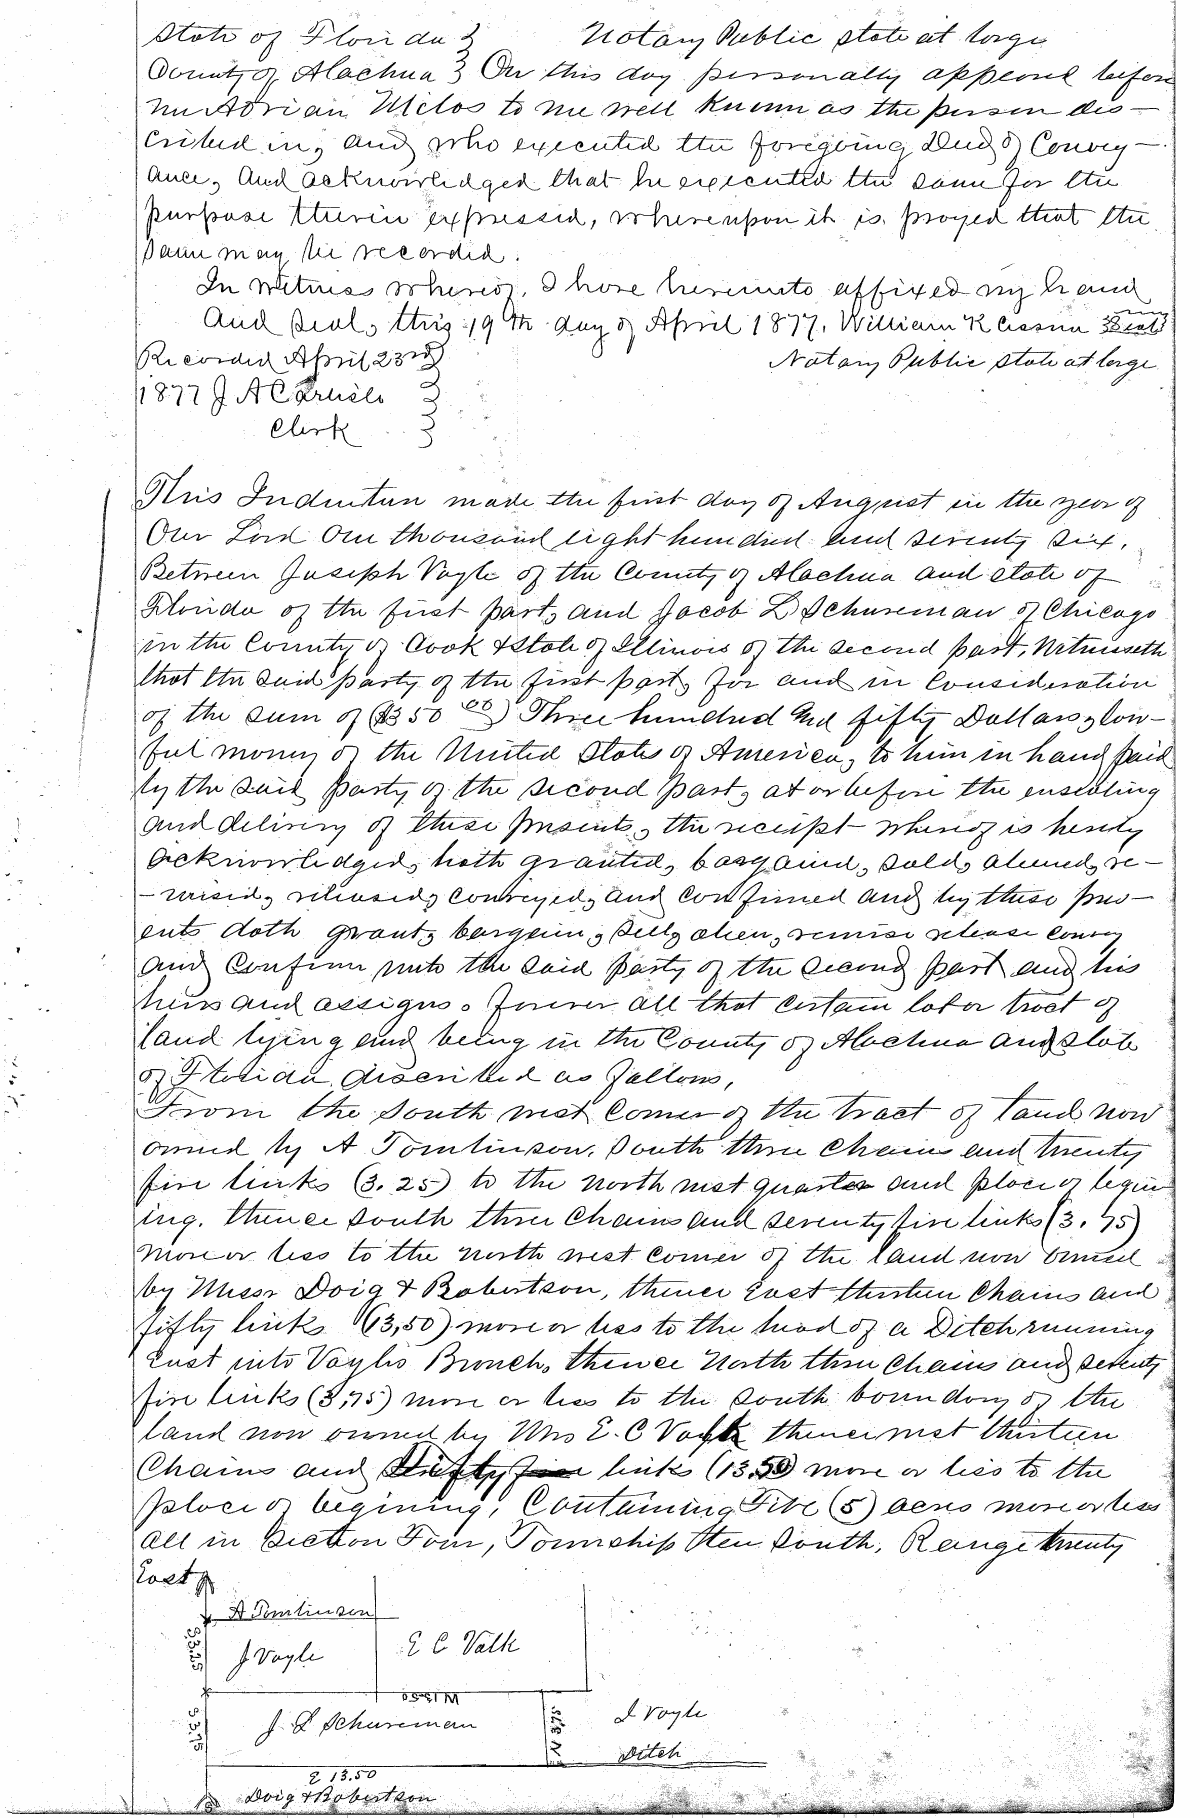 State of Florida } Notary Public state at large
County of Alachua } On this day personally appeared before
me Adrian Melos to me well known as the person des-
cribed in, and who executed the foregoing Deed of Convey-
ance, And acknowledged that he executed the same for the
purpose therein expressed, whereupon it is prayed that the
same may be recorded.
In witness whereof, I have hereunto affixed my hand
And Seal, this 19th day of April 1877. William K Cessna Seal
Recorded April 23rd } Notary Public state at large
1877 J A Carlisle }
Clerk }
This Indenture made the first day of August in the year of
Our Lord One thousand eight hundred and seventy six.
Between Joseph Voyle of the County of Alachua and state of
Florida of the first part, and Jacob L Schureman of Chicago
in the County of Cook & State of Illinois of the second part, Witnesseth
that the said party of the first part, for and in Consideration
of the sum of ($350 00) Three hundred and fifty Dollars, law-
ful money of the United States of America, to him in hand paid
by the said party of the second part, at or before the ensealing
and delivery of these presents, the receipt whereof is hereby
acknowledged, hath granted, bargained, sold, aliened, re-
-mised, released, conveyed, and confirmed and by these pres-
ents doth grant, bargain, sell, alien, remise release convey
and Confirm unto the said party of the second part and his
heirs and assigns, forever all that certain lot or tract of
land lying and being in the County of Alachua and State
of Florida, discribed as follows,
From the South west Corner of the tract of land now
owned by A Tomlinson, South three Chains and twenty
five links (3.25) to the north west quarter and place of begin
ing. thence South three Chains and seventy five links (3.75)
more or less to the north west corner of the land now owned
by Messr Doig & Robertson, thence East thirteen Chains and
fifty links (13,50) more or less to the head of a Ditch running
East into Voyles Branch, thence North three Chains and seventy
five links (3,75) more or less to the south boundary of the
land now owned by Mrs E. C Valk thence west thirteen
Chains and fifty links (13.50) more or less to the
place of begining, Containing Five (5) acres more or less
all in Section Four, Township Ten South, Range twenty
East
A Tomlinson
J Voyle E C Valk
W 13.50
J. L Schureman J Voyle
Ditch
E 13.50
Doig & Robertson